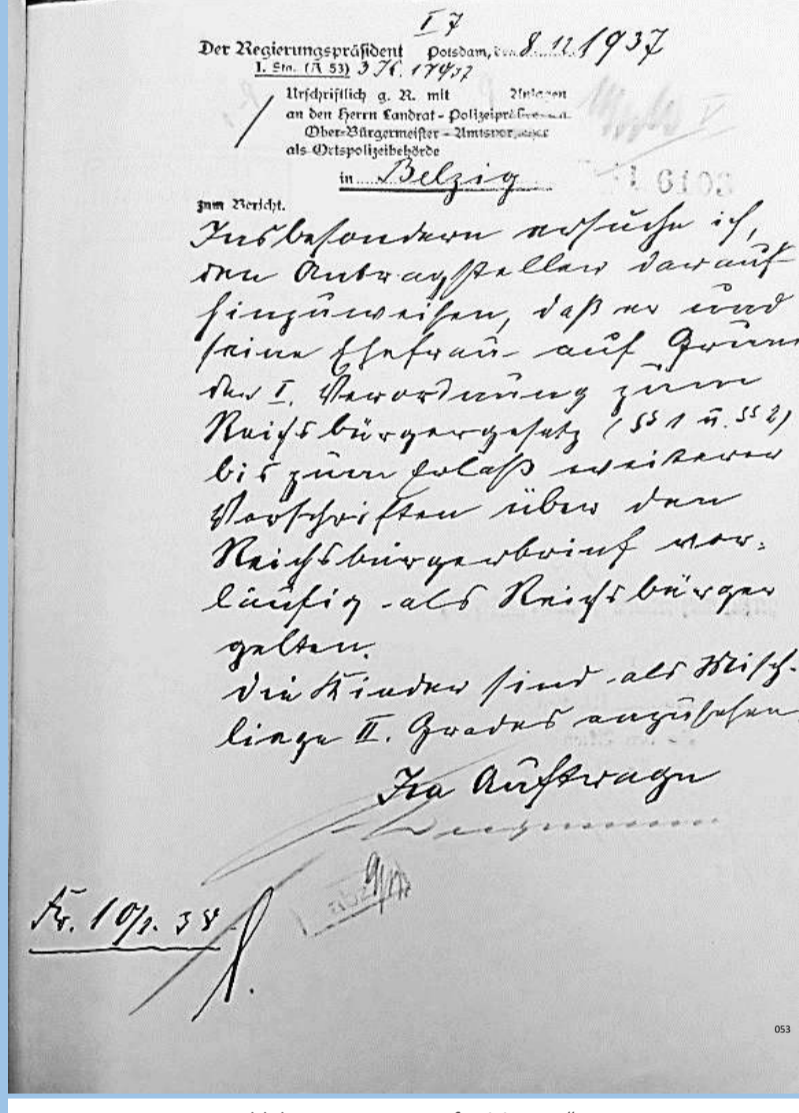 I 7
Der Regierungspräsident Potsdam, den 8. 12. 1937
I. Sta. (A 53) 3 K. 174/37
Urschriftlich g. R. mit Anlagen
an den Herrn Landrat - Polizeipräsidenten
Ober-Bürgermeister - Amtsvorsteher
als Ortspolizeibehörde
in Belzig
zum Bericht.
Insbesondern ersuche ich,
den Antragsteller darauf
hinzuweisen, daß er und
seine Ehefrau auf Grund
der I. Verordnung zum
Reichsbürgergesetz (§§ 1 u. §§ 2)
bis zum Erlaß weiterer
Vorschriften über den
Reichsbürgerbrief vor-
läufig als Reichsbürger
gelten.
Die Kinder sind als Misch-
linge II. Grades anzusehen
Im Auftrage
Fr. 10/1. 38
053